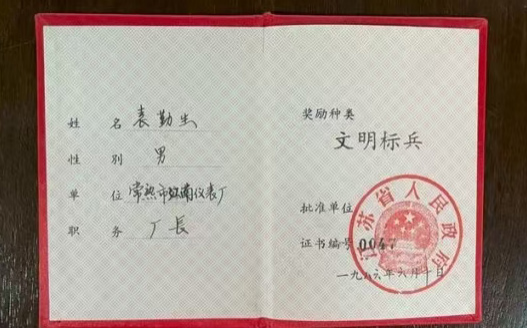 姓名 袁勤生
性别 男
单位 常熟市 仪表厂
职务 厂长
奖励种类
文明标兵
批准单位
江苏省人民政府
证书编号 004
一九八六年六月 日